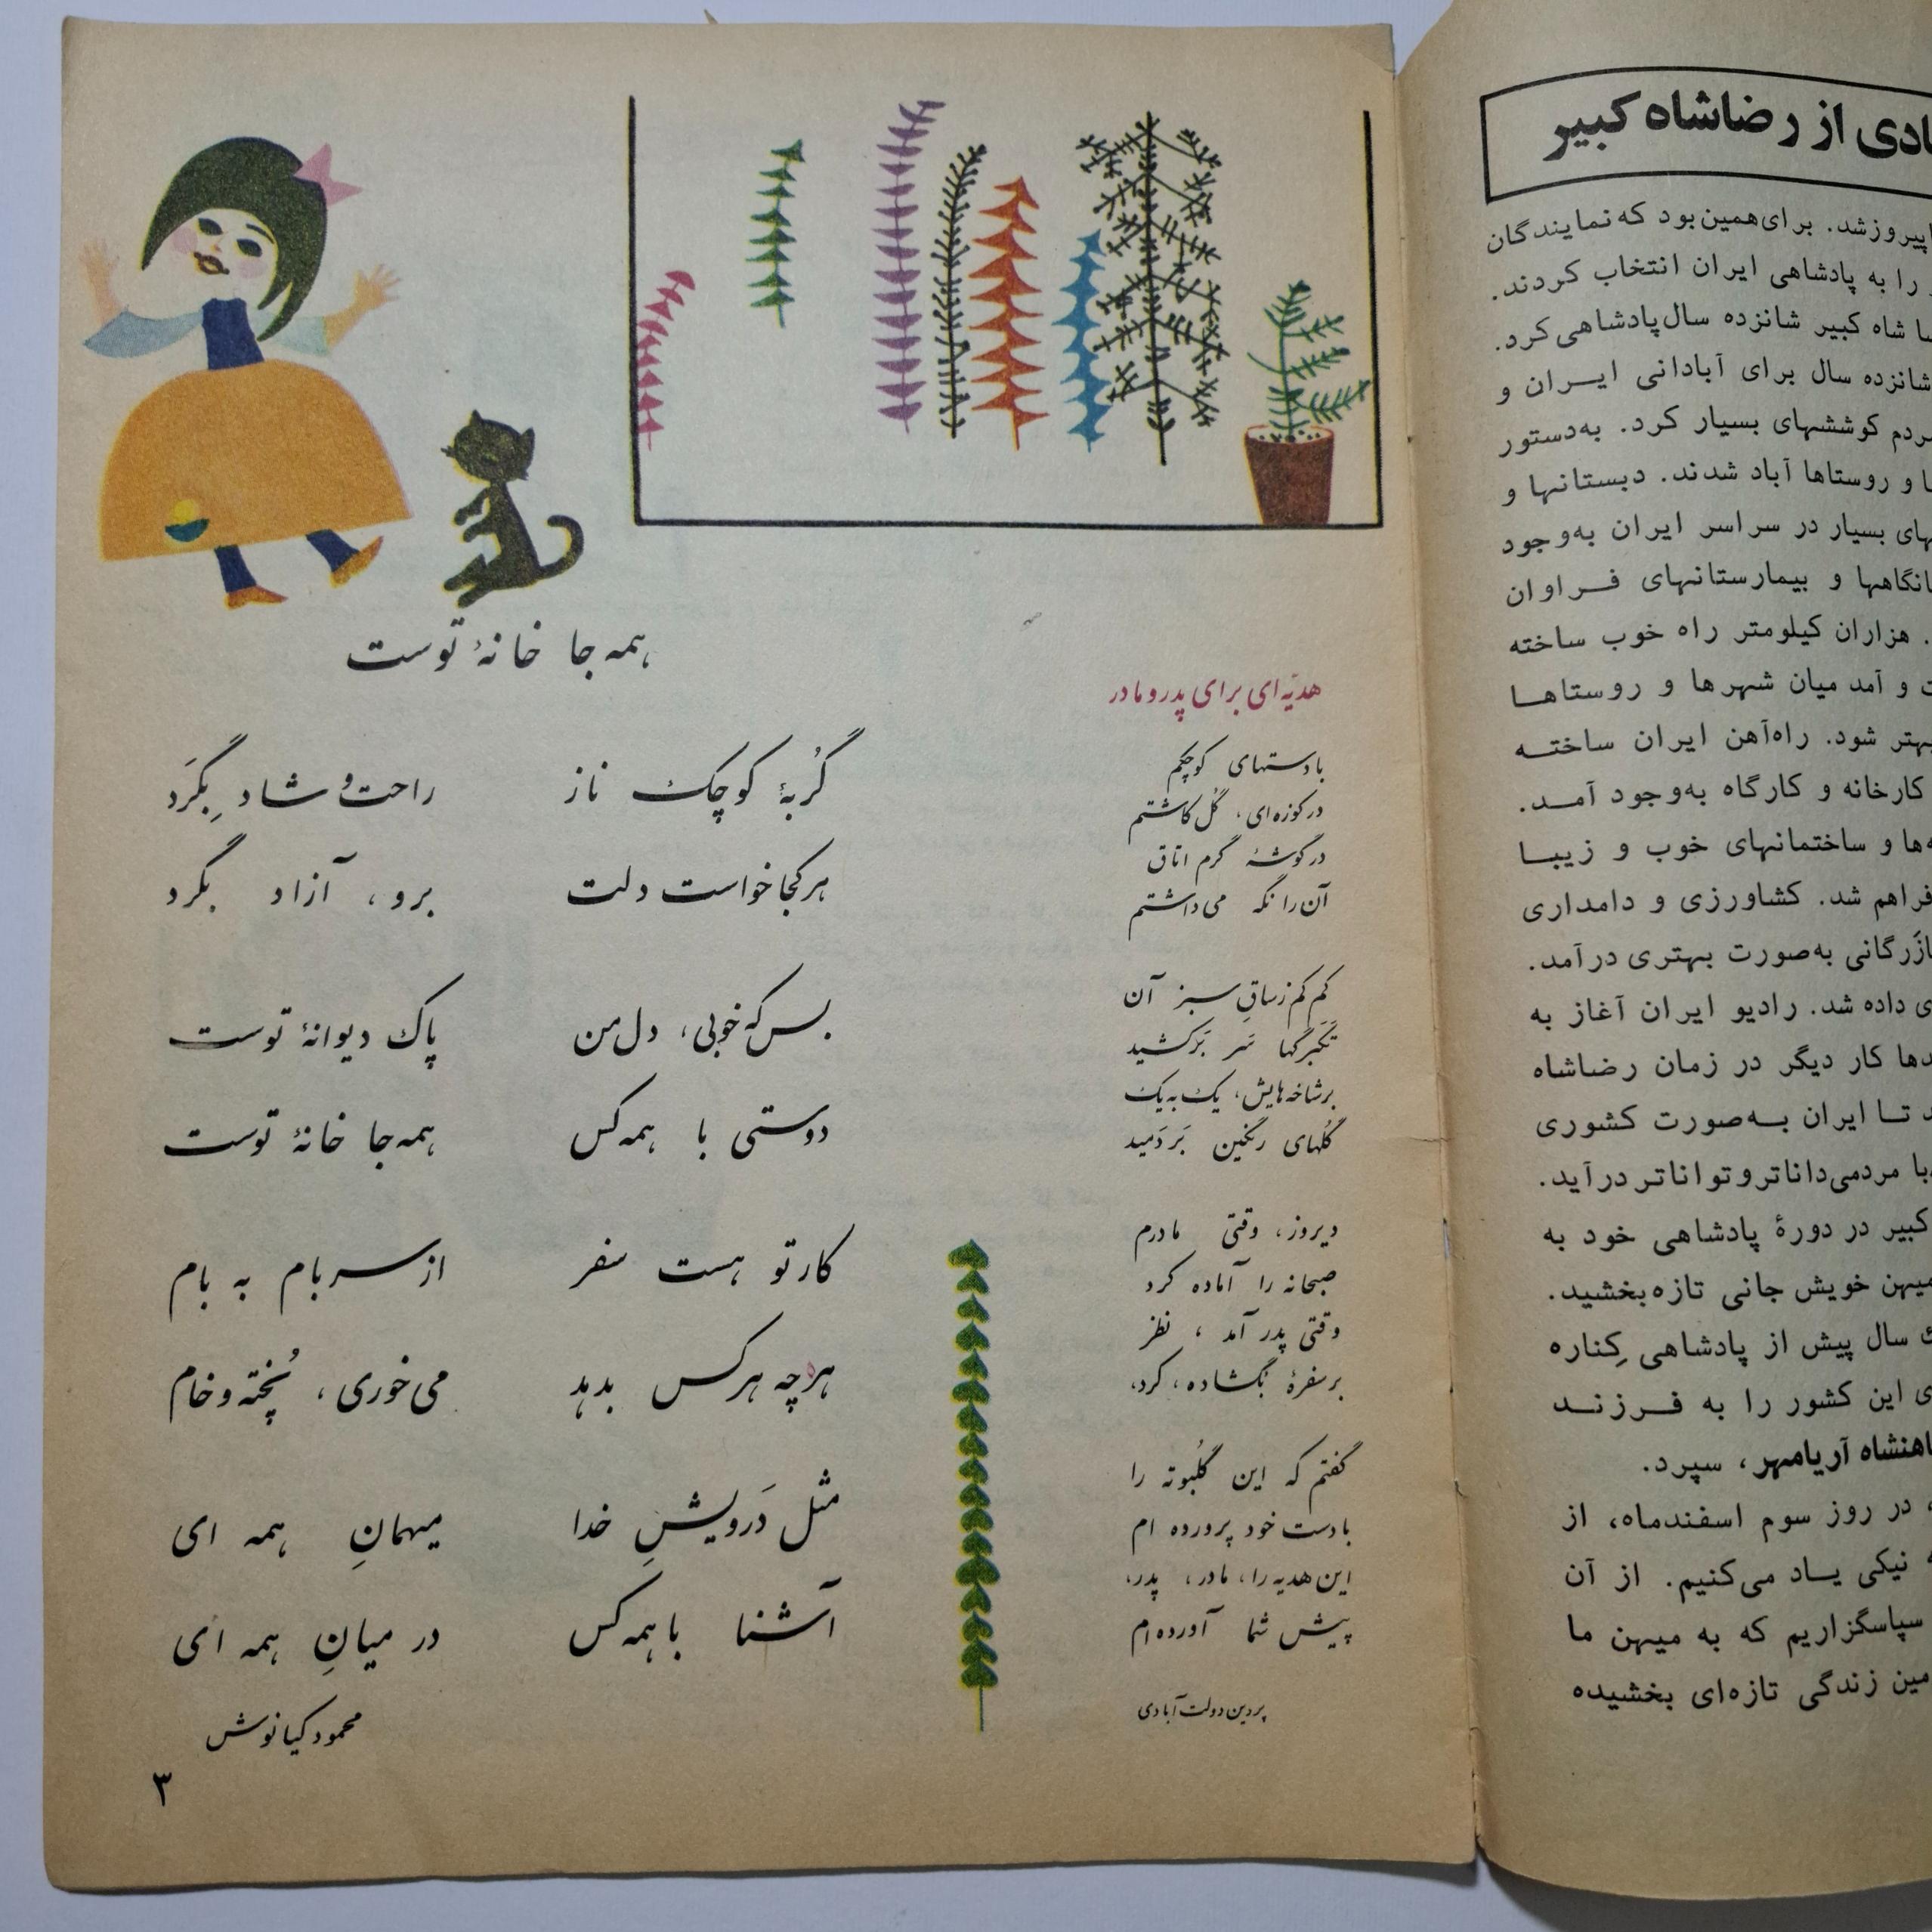 ادی از رضاشاه کبیر
پیروزشد. برای‌همین‌بود که نمایندگان
را به پادشاهی ایران انتخاب کردند.
شاه کبیر شانزده سال پادشاهی کرد.
شانزده سال برای آبادانی ایران و
مردم کوششهای بسیار کرد. به‌دستور
و روستاها آباد شدند. دبستانها و
های بسیار در سراسر ایران به‌وجود
و بیمارستانهای فراوان
. هزاران کیلومتر راه خوب ساخته
و آمد میان شهرها و روستاها
بهتر شود. راه‌آهن ایران ساخته
کارخانه و کارگاه به‌وجود آمد.
و ساختمانهای خوب و زیبا
فراهم شد. کشاورزی و دامداری
بازرگانی به‌صورت بهتری درآمد.
داده شد. رادیو ایران آغاز به
کار دیگر در زمان رضاشاه
تا ایران به‌صورت کشوری
با مردمی داناتر و تواناتر درآید.
کبیر در دورهٔ پادشاهی خود به
میهن خویش جانی تازه بخشید.
سال پیش از پادشاهی کِناره
این کشور را به فرزند
اهنشاه آریامهر، سپرد.
، در روز سوم اسفندماه، از
نیکی یاد می‌کنیم. از آن
سپاسگزاریم که به میهن ما
زندگی تازه‌ای بخشیده
هدیّه‌ای برای پدر و مادر
با دستهای کوچکم
در کوزه‌ای، گُل کاشتم
در گوشهٔ گرم اتاق
آن را نگه می‌داشتم
کم کم ز ساقِ سبز آن
تَکبرگها سَر بَرکشید
بر شاخه‌هایش، یک به یک
گُلهای رنگین بَردَمید
دیروز، وقتی مادرم
صبحانه را آماده کرد
وقتی پدر آمد، نظر
بر سفرهٔ بگشاده، کرد،
گفتم که این گُلبوته را
با دست خود پرورده ام
این هدیه را، مادر، پدر،
پیش شما آورده‌ام
پروین دولت‌آبادی
همه جا خانهٔ توست
گُربهٔ کوچک ناز راحت و شاد بِگَرد
هر کجا خواست دلت برو، آزاد بگرد
بس که خوبی، دل من پاک دیوانهٔ توست
دوستی با همه کس همه جا خانهٔ توست
کار تو هست سفر از سر بام به بام
هر چه هر کس بدهد می‌خوری، پُخته و خام
مثل دَرویشِ خدا میهمانِ همه ای
آشنا با همه کس در میانِ همه ای
محمود کیانوش
۳